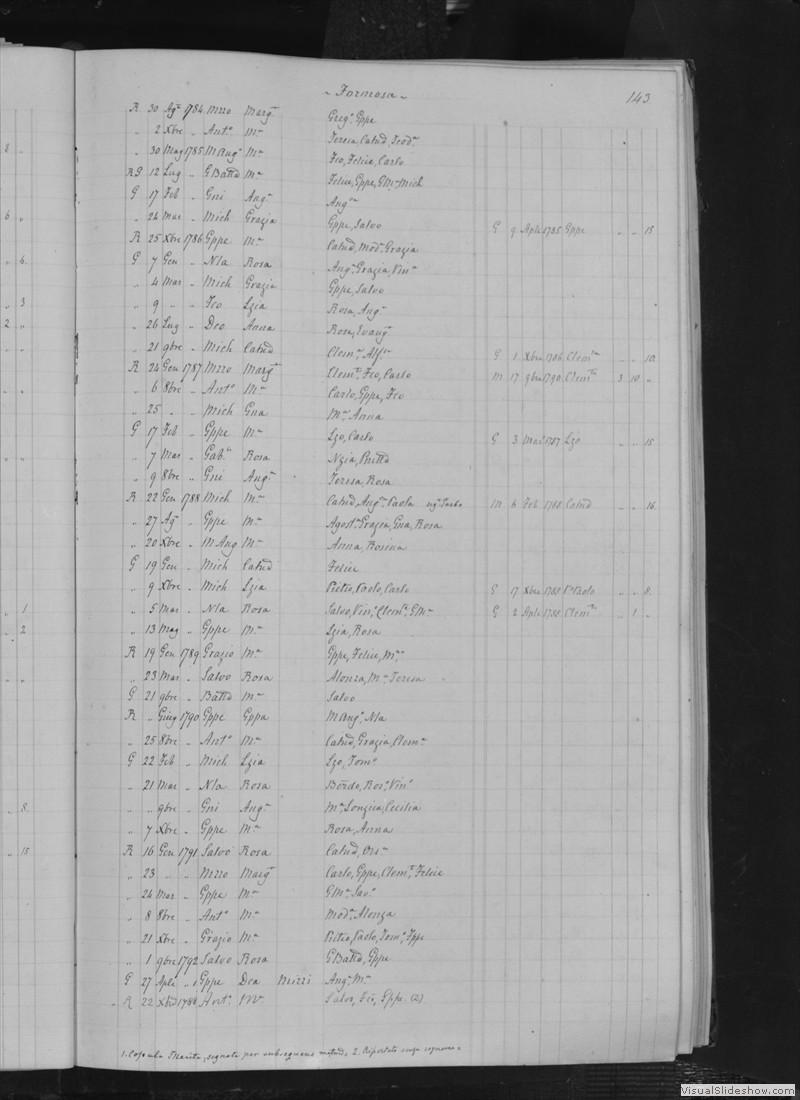 ~ Formosa ~ 143
R 30 Agº 1784 Nzzo Margª Gregº, Gppe
„ 2 Xbre „ Antº Mª Teresa, Catud, Teodª
8 „ 30 Mag 1785 MAngº Mª Fco, Felice, Carlo
RG 12 Lug „ GBatta Mª Felice, Gppe, GMª, Mich
G 17 Feb „ Gni Angª Angª
6 „ 24 Mar „ Mich Grazia Gppe, Salvo G 9 Aple 1785 Gppe „ „ 15
R 25 Xbre 1786 Gppe Mª Catud, Modª, Grazia
„ 6 G 7 Gen „ Nla Rosa Angª, Grazia, Vinª
„ 4 Mar „ Mich Grazia Gppe, Salvo
„ 3 „ 9 „ „ Fco Lzia Rosa, Angª
2 „ „ 26 Lug „ Dco Anna Rosa, Evangª
„ 21 9bre „ Mich Catud Clemª, Alfª G 1 Xbre 1786 Clemª „ „ 10
R 24 Gen 1787 Nzzo Margª Clemª, Fco, Carlo M 17 9bre 1790 Clemª 3 10 „
„ 6 8bre „ Antº Mª Carlo, Gppe, Fco
„ 25 „ „ Mich Gna Mª Anna
G 17 Feb „ Gppe Mª Lzo, Carlo G 3 Mar 1787 Lzo „ „ 15
„ 7 Mar „ Gabˡᵉ Rosa Nzia,
„ 9 8bre „ Gni Angª Teresa, Rosa
R 22 Gen 1788 Mich Mª Catud, Angª, Paola M 6 Feb 1788 Catud „ „ 16
„ 27 Agº „ Gppe Mª Agostª, Grazia, Gna, Rosa
„ 20 Xbre „ MAng Mª Anna, Rosina
G 19 Gen „ Mich Catud Felice
„ 9 Xbre „ Mich Lzia Pietro, Paolo, Carlo G 17 Xbre 1788 Pº Paolo „ „ 8
„ 1 „ 5 Mar „ Nla Rosa Salvo, Vinº, Clemª, GMª G 2 Aple 1788 Clemª „ 1 „
„ 2 „ 13 Mag „ Gppe Mª Lzia, Rosa
R 19 Gen 1789 Grazio Mª Gppe, Felice, Mª
„ 23 Mar „ Salvo Rosa Alonza, Mª Teresa
G 21 9bre „ Batta Mª Salvo
R „ Giug 1790 Gppe Gppa MAngº, Nla
„ 25 8bre „ Antº Mª Catud, Grazia, Clemª
G 22 Feb „ Mich Lzia Lzo, Tomº
„ 21 Mar „ Nla Rosa Bördo, Rosº, Vinº
„ 8 „ „ 9bre „ Gni Angª Mª, Longica, Cecilia
„ 7 Xbre „ Gppe Mª Rosa, Anna
„ 15 R 16 Gen 1791 Salvo Rosa Catud, Orsª
„ 23 „ „ Nzzo Margª Carlo, Gppe, Clemª, Felice
„ 24 Mar „ Gppe Mª GMª, Savº
„ 8 8bre „ Antº Mª Modª, Alonza
„ 21 Xbre „ Grazio Mª Pietro, Paolo, Tomº, Fppe
„ 1 9bre 1792 Salvo Rosa GBatta, Gppe
G 27 Aple „ 1 Gppe Dca Mizzi Angª, Mª
„ R 22 Xbre 1786 Antº Mª Salvo, Fco, Gppe (2)
1. Copula segnata per 2. Riportato senza cognome
VisualSlideshow.com